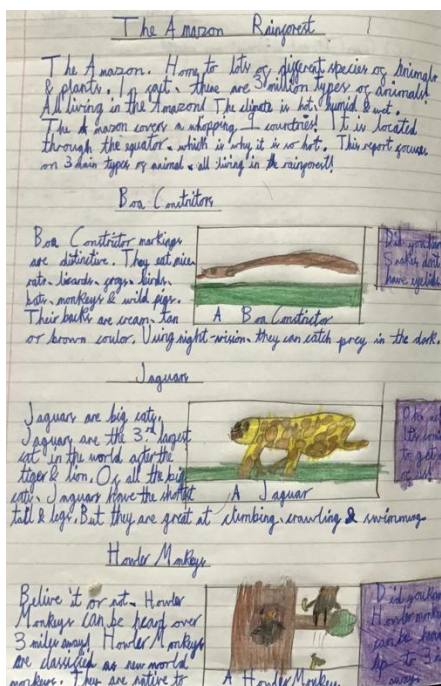 The Amazon Rainforest
The Amazon. Home to lots of different species of animals
& plants. In fact, there are 3 million types of animals!
All living in the Amazon! The climate is hot, humid & wet.
The Amazon covers a whopping countries! It is located
through the equator, which is why it is so hot. This report focuses
on 3 main types of animal, all living in the rainforest!
Boa Constrictors
Boa Constrictor markings
are distinctive. They eat mice,
rats, lizards, frogs, birds,
bats, monkeys & wild pigs.
Their backs are cream, tan
or brown coulor. Using night-vision, they can catch prey in the dark.
Did you know
Snakes don't
have eyelids
A Boa Constrictor
Jaguars
Jaguars are big cats.
Jaguars are the 3rd largest
cat in the world after the
tiger & lion. Of all the big
cats, Jaguars have the shortest
tail & legs. But they are great at climbing, crawling & swimming.
to get
A Jaguar
Howler Monkeys
Belive it or not, Howler
Monkeys can be heard over
3 miles away! Howler Monkeys
are classified as new world
monkeys. They are native to
Did you know
Howler monkeys
can be heard
up to 3
away
A Howler Monkey